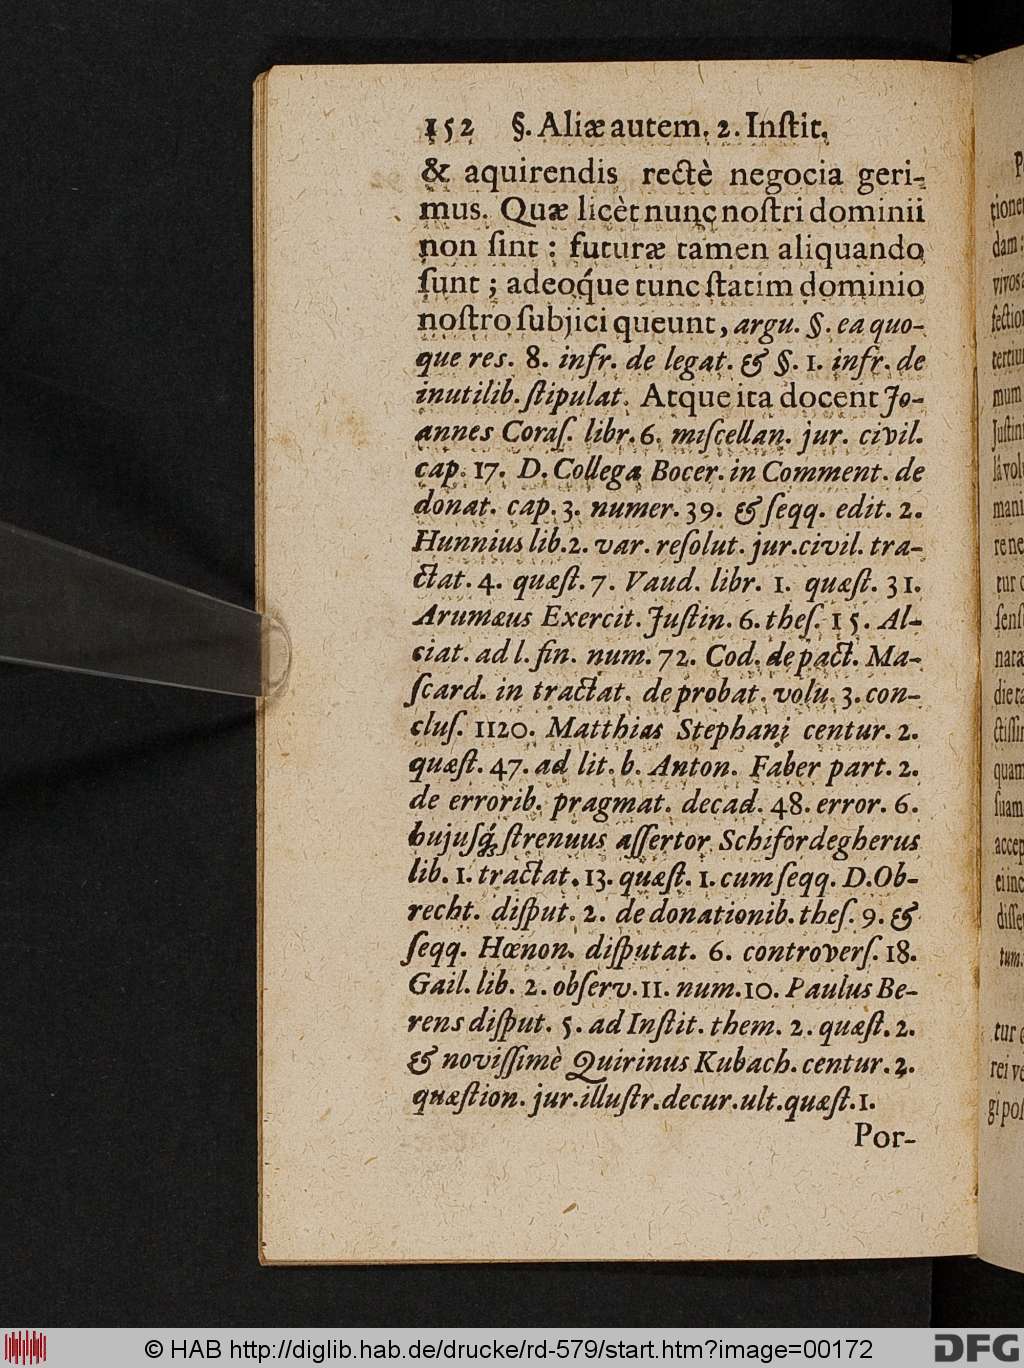 152 §. Aliæ autem. 2. Inſtit.
& aquirendis rectè negocia geri-
mus. Quæ licèt nunc noſtri dominii
non ſint : futuræ tamen aliquando
ſunt ; adeoq́ue tunc ſtatim dominio
noſtro ſubjici queunt, argu. §. ea quo-
que res. 8. infr. de legat. & §. 1. infr. de
inutilib. ſtipulat. Atque ita docent Jo-
annes Coraſ. libr. 6. miſcellan. jur. civil.
cap. 17. D. Collega Bocer. in Comment. de
donat. cap. 3. numer. 39. & ſeqq. edit. 2.
Hunnius lib. 2. var. reſolut. jur. civil. tra-
ctat. 4. quæſt. 7. Vaud. libr. 1. quæſt. 31.
Arumæus Exercit. Juſtin. 6. theſ. 15. Al-
ciat. ad l. fin. num. 72. Cod. de pact. Ma-
ſcard. in tractat. de probat. volu. 3. con-
cluſ. 1120. Matthias Stephani centur. 2.
quæſt. 47. ad lit. b. Anton. Faber part. 2.
de errorib. pragmat. decad. 48. error. 6.
hujuſq́; ſtrenuus aſſertor Schifordegherus
lib. 1. tractat. 13. quæſt. 1. cum ſeqq. D. Ob-
recht. diſput. 2. de donationib. theſ. 9. &
ſeqq. Hœnon. diſputat. 6. controverſ. 18.
Gail. lib. 2. obſerv. 11. num. 10. Paulus Be-
rens diſput. 5. ad Inſtit. them. 2. quæſt. 2.
& noviſſimè Quirinus Kubach. centur. 2.
quæſtion. jur. illuſtr. decur. ult. quæſt. 1.
Por-
© HAB http://diglib.hab.de/drucke/rd-579/start.htm?image=00172
DFG